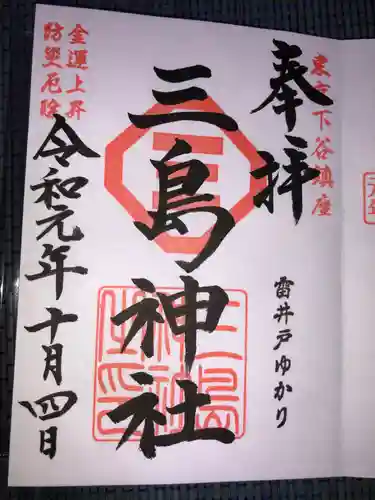 奉拝
東京下谷鎮座
雷井戸ゆかり
三島神社
金運上昇
防災厄除
令和元年十月四日